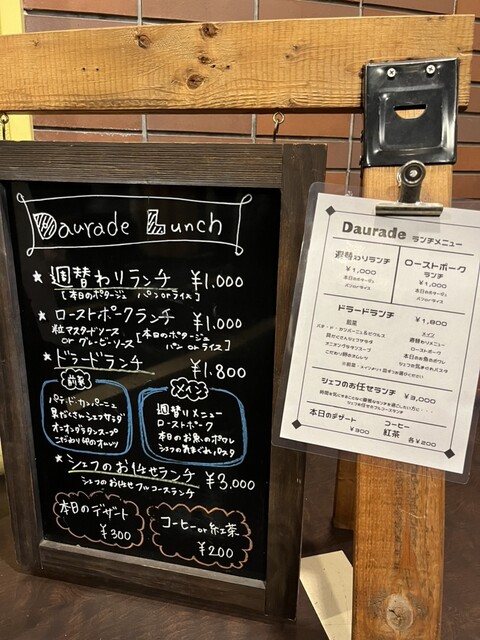 Daurade Lunch
★ 週替わりランチ ¥1,000
[本日のポタージュ パンorライス]
★ ローストポークランチ ¥1,000
粒マスタードソース
or グレービーソース
[本日のポタージュ
パン or ライス]
★ ドラードランチ ¥1.800
前菜
パテ・ド・カンパーニュ
具だくさんシェフサラダ
オニオングラタンスープ
こだわり卵のオムレツ
メイン
週替りメニュー
ローストポーク
本日のお魚のポワレ
シェフの気まぐれパスタ
★ シェフのお任せランチ ¥3,000
シェフのお任せフルコースランチ
本日のデザート
¥300
コーヒー or 紅茶
¥200
Daurade ランチメニュー
週替わりランチ
¥1,000
本日のポタージュ
パンorライス
ローストポーク
ランチ
¥1,000
本日のポタージュ
パンorライス
ドラードランチ ¥1,800
前菜
具だくさんシェフサラダ
オニオングラタンスープ
こだわり卵のオムレツ
メイン
週替わりメニュー
ローストポーク
本日のお魚のポワレ
シェフの気まぐれパスタ
シェフのお任せランチ ¥3,000
シェフお任せフルコースランチ
本日のデザート
¥300
コーヒー
紅茶
各¥200